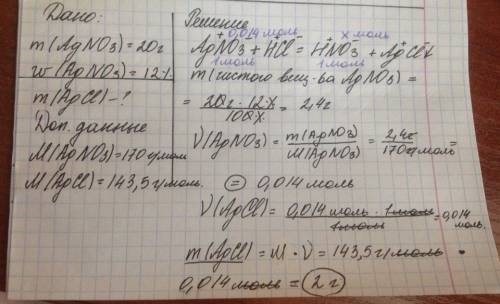 Дано:
m(AgNO₃)=20г
w(AgNO₃)=12%
m(AgCl)-?
Доп. данные
M(AgNO₃)=170г/моль
M(AgCl)=143,5г/моль.
Решение
0,014 моль x моль
AgNO₃ + HCl = HNO₃ + AgCl↓
1моль 1моль
m(чистого вещ-ва AgNO₃) =
= 20г · 12% / 100% = 2,4г
ν(AgNO₃) = m(AgNO₃) / M(AgNO₃) = 2,4г / 170г/моль =
= 0,014 моль
ν(AgCl) = 0,014 моль · 1моль / 1моль = 0,014 моль.
m(AgCl) = M · ν = 143,5г/моль ·
0,014 моль = 2г